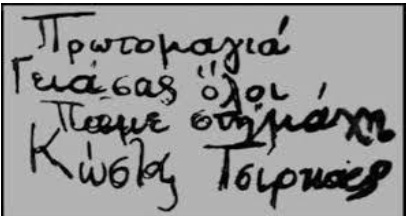 Πρωτομαγιά
Γειά σας όλοι
Πάμε στη μάχη
Κώστας Τσίρκας